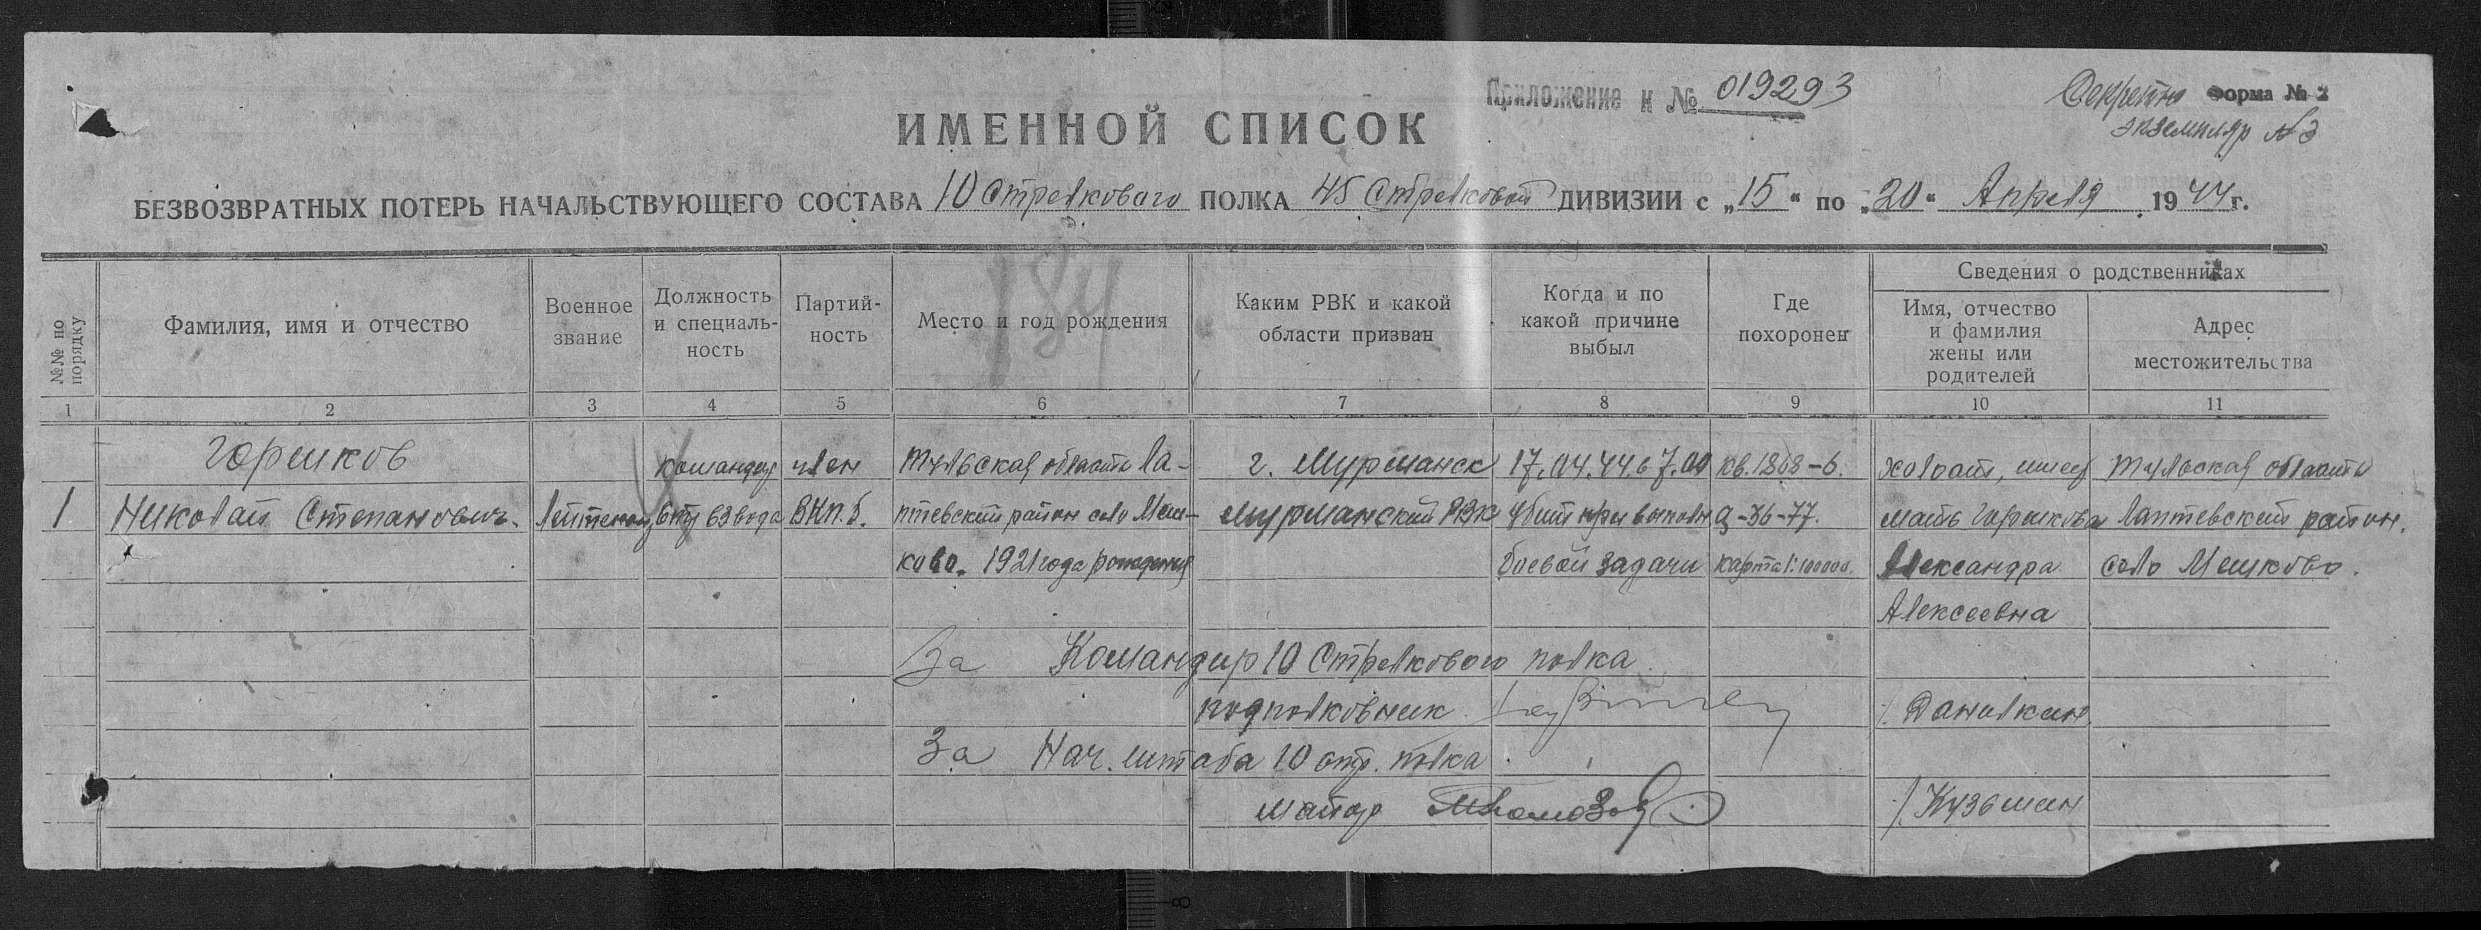 Приложение к № 019293
Секретно Форма № 2
экземпляр № 3
ИМЕННОЙ СПИСОК
БЕЗВОЗВРАТНЫХ ПОТЕРЬ НАЧАЛЬСТВУЮЩЕГО СОСТАВА 10 Стрелкового ПОЛКА 45 Стрелковой ДИВИЗИИ с „15“ по „20“ Апреля 1944 г.
184
№№ по порядку
Фамилия, имя и отчество
Военное
звание
Должность
и специаль-
ность
Партий-
ность
Место и год рождения
Каким РВК и какой
области призван
Когда и по
какой причине
выбыл
Где
похоронен
Сведения о родственниках
Имя, отчество
и фамилия
жены или
родителей
Адрес
местожительства
1 2 3 4 5 6 7 8 9 10 11
Горшков командир член Тульская область Ла- г. Мурманск 17.04.44. в 7.00 кв. 1868-б. холост, имеет Тульская область
1 Николай Степанович. Лейтенант взвода ВКП.б. птевский район село Меш- Мурманский РВК убит при выполн 36-77. мать Горшкова Лаптевский район.
ково. 1921 года рождения боевой задачи карта 1:100000. Александра село Мешково.
Алексеевна
За Командир 10 Стрелкового полка
подполковник /Данилкин
За Нач. штаба 10 стр. полка
майор /Кузьмин
8